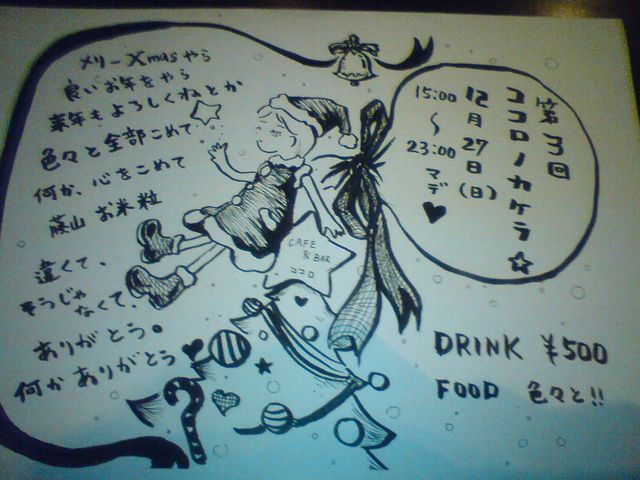 メリーXmasやら
良いお年をやら
来年もよろしくねとか
色々と全部こめて
何か、心をこめて
藤山 お米粒
違くて、
そうじゃ
なくて、
ありがとう。
何かありがとう
CAFE
& BAR
ココロ
第3回
ココロノカケラ☆
12月27日(日)
15:00
〜
23:00マデ♥
DRINK ¥500
FOOD 色々と!!